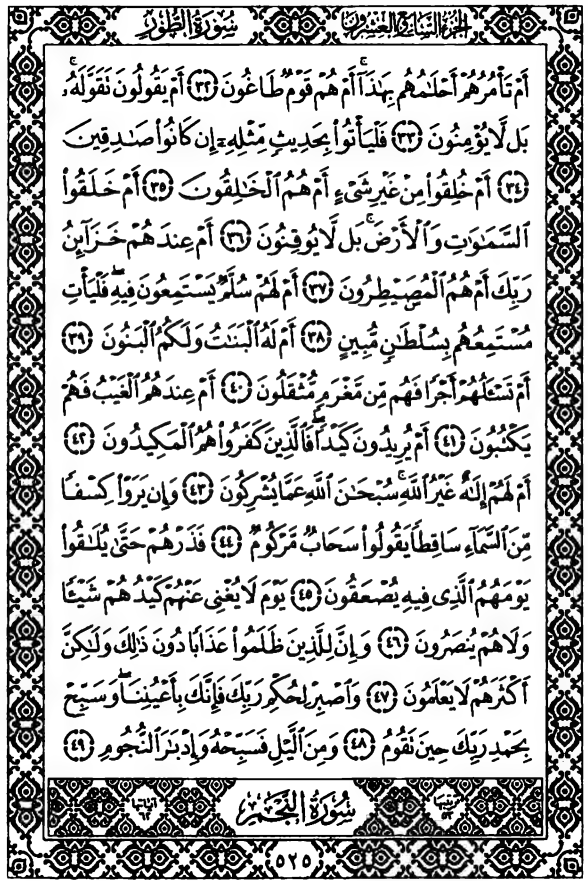 الجزء السابع والعشرون سورة الطور
أَمْ تَأْمُرُهُمْ أَحْلَٰمُهُم بِهَٰذَآ ۚ أَمْ هُمْ قَوْمٌ طَاغُونَ ٣٢ أَمْ يَقُولُونَ تَقَوَّلَهُۥ ۚ
بَل لَّا يُؤْمِنُونَ ٣٣ فَلْيَأْتُوا۟ بِحَدِيثٍ مِّثْلِهِۦٓ إِن كَانُوا۟ صَٰدِقِينَ
٣٤ أَمْ خُلِقُوا۟ مِنْ غَيْرِ شَىْءٍ أَمْ هُمُ الْخَٰلِقُونَ ٣٥ أَمْ خَلَقُوا۟
السَّمَٰوَٰتِ وَالْأَرْضَ ۚ بَل لَّا يُوقِنُونَ ٣٦ أَمْ عِندَهُمْ خَزَآئِنُ
رَبِّكَ أَمْ هُمُ الْمُصَۣيْطِرُونَ ٣٧ أَمْ لَهُمْ سُلَّمٌ يَسْتَمِعُونَ فِيهِ ۖ فَلْيَأْتِ
مُسْتَمِعُهُم بِسُلْطَٰنٍ مُّبِينٍ ٣٨ أَمْ لَهُ الْبَنَٰتُ وَلَكُمُ الْبَنُونَ ٣٩
أَمْ تَسْـَٔلُهُمْ أَجْرًا فَهُم مِّن مَّغْرَمٍ مُّثْقَلُونَ ٤٠ أَمْ عِندَهُمُ الْغَيْبُ فَهُمْ
يَكْتُبُونَ ٤١ أَمْ يُرِيدُونَ كَيْدًا ۖ فَالَّذِينَ كَفَرُوا۟ هُمُ الْمَكِيدُونَ ٤٢
أَمْ لَهُمْ إِلَٰهٌ غَيْرُ اللَّهِ ۚ سُبْحَٰنَ اللَّهِ عَمَّا يُشْرِكُونَ ٤٣ وَإِن يَرَوْا۟ كِسْفًا
مِّنَ السَّمَآءِ سَاقِطًا يَقُولُوا۟ سَحَابٌ مَّرْكُومٌ ٤٤ فَذَرْهُمْ حَتَّىٰ يُلَٰقُوا۟
يَوْمَهُمُ الَّذِى فِيهِ يُصْعَقُونَ ٤٥ يَوْمَ لَا يُغْنِى عَنْهُمْ كَيْدُهُمْ شَيْـًٔا
وَلَا هُمْ يُنصَرُونَ ٤٦ وَإِنَّ لِلَّذِينَ ظَلَمُوا۟ عَذَابًا دُونَ ذَٰلِكَ وَلَٰكِنَّ
أَكْثَرَهُمْ لَا يَعْلَمُونَ ٤٧ وَاصْبِرْ لِحُكْمِ رَبِّكَ فَإِنَّكَ بِأَعْيُنِنَا ۖ وَسَبِّحْ
بِحَمْدِ رَبِّكَ حِينَ تَقُومُ ٤٨ وَمِنَ الَّيْلِ فَسَبِّحْهُ وَإِدْبَٰرَ النُّجُومِ ٤٩
ترتيبها ٥٣ سورة النجم آياتها ٦٢
٥٢٥